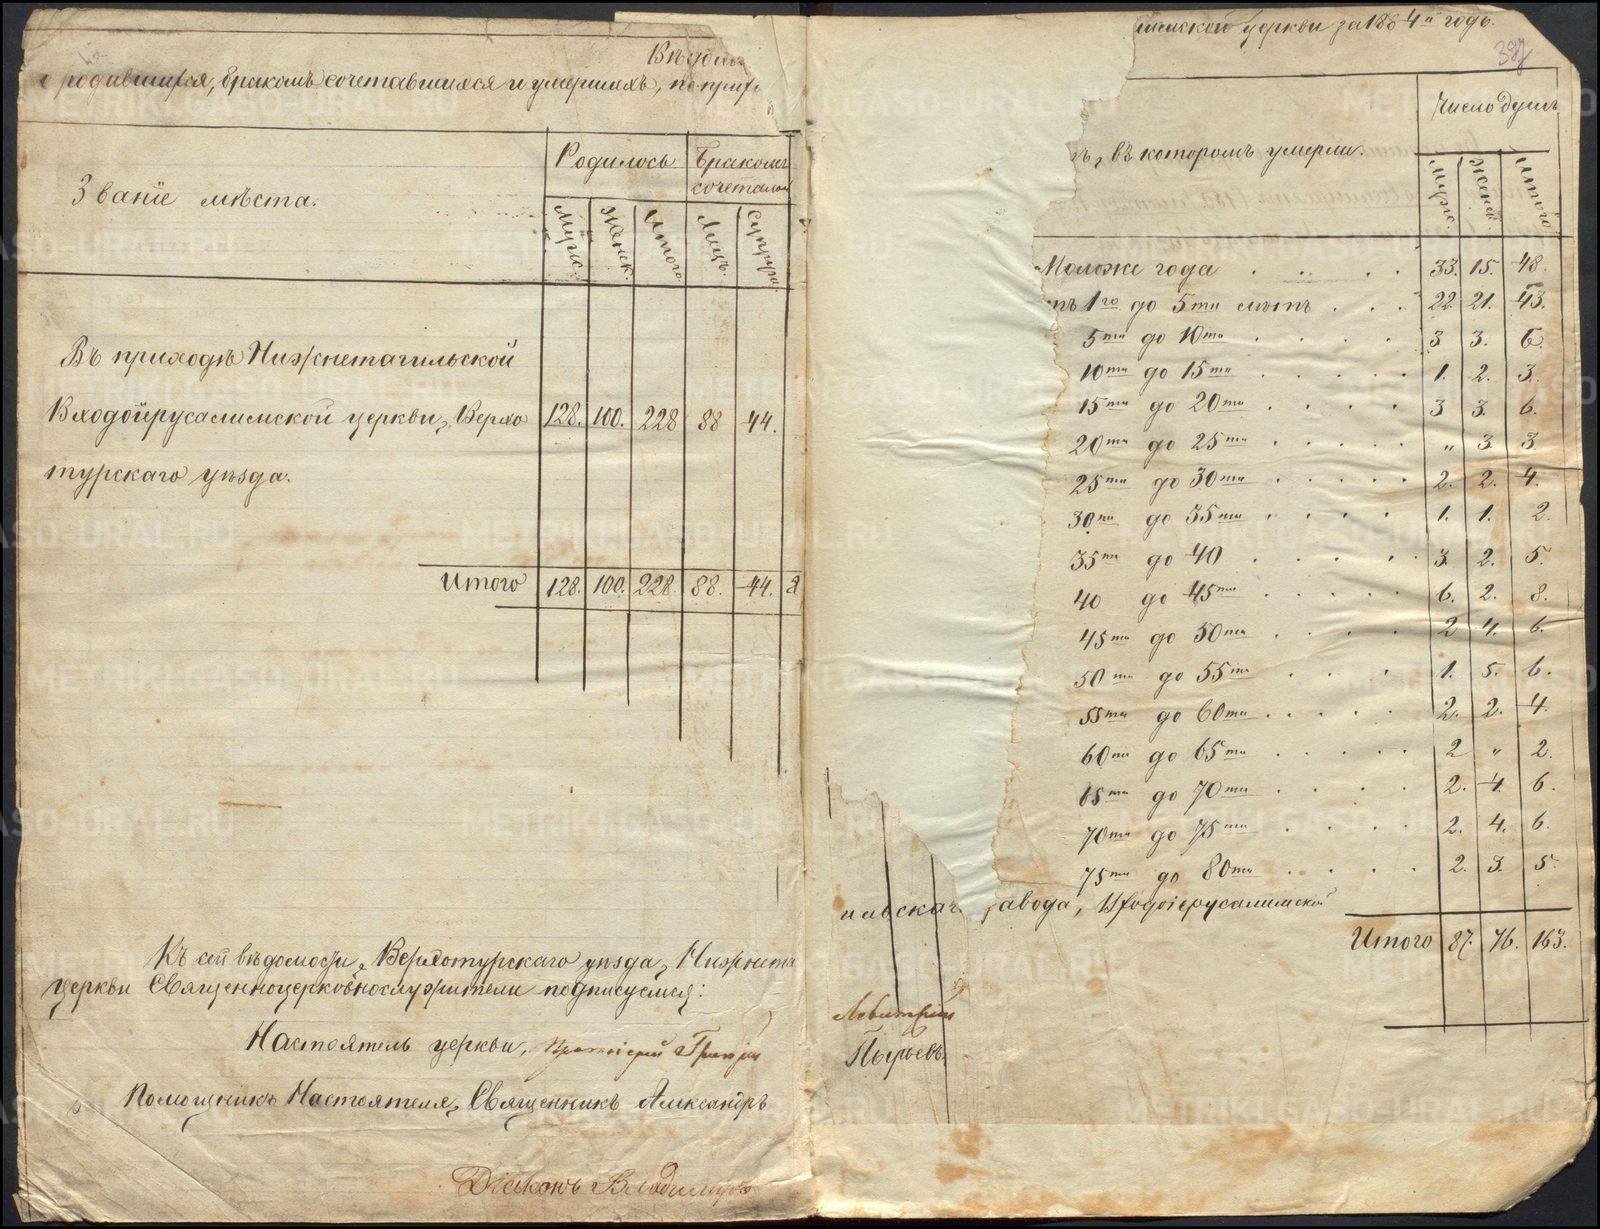 о родившихся, бракомъ сочетавшихся и умершихъ, по
Званіе мѣста.
Родилось
Бракомъ
сочеталось
Мужс.
Женск.
Итого
Лицъ.
Въ приходѣ Нижнетагильской
Входоіерусалимской церкви, Верхо
128. 100. 228 88 44.
турскаго уѣзда.
Итого 128. 100. 228. 88. 44.
Къ сей вѣдомости, Верхотурскаго уѣзда, Нижнета
церкви Священноцерковнослужители подписуемся:
Настоятель церкви, Протоіерей
Помощникъ Настоятеля, Священникъ Александръ
Діаконъ Владиміръ
церкви за 1884й годъ.
387
Число душъ
въ которомъ умерли.
Мужс.
Женск.
Итого
Моложе года 33. 15. 48.
1го до 5ти лѣтъ 22. 21. 43.
5ти до 10ти 3 3. 6.
10ти до 15ти 1. 2. 3.
15ти до 20ти 3 3. 6.
20ти до 25ти „ 3. 3
25ти до 30ти 2. 2. 4.
30ти до 35ти 1. 1. 2.
35ти до 40 3. 2. 5.
40 до 45ти 6. 2. 8.
45ти до 50ти 2 4. 6.
50ти до 55ти 1. 5. 6.
55ти до 60ти 2. 2. 4.
60ти до 65ти 2 „ 2.
65ти до 70ти 2. 4. 6.
70ти до 75ти 2. 4. 6.
75ти до 80ти 2. 3. 5.
завода, Входоіерусалимской
Итого 87. 76. 163.
Пырьевъ.
METRIKI.GASO-URAL.RU